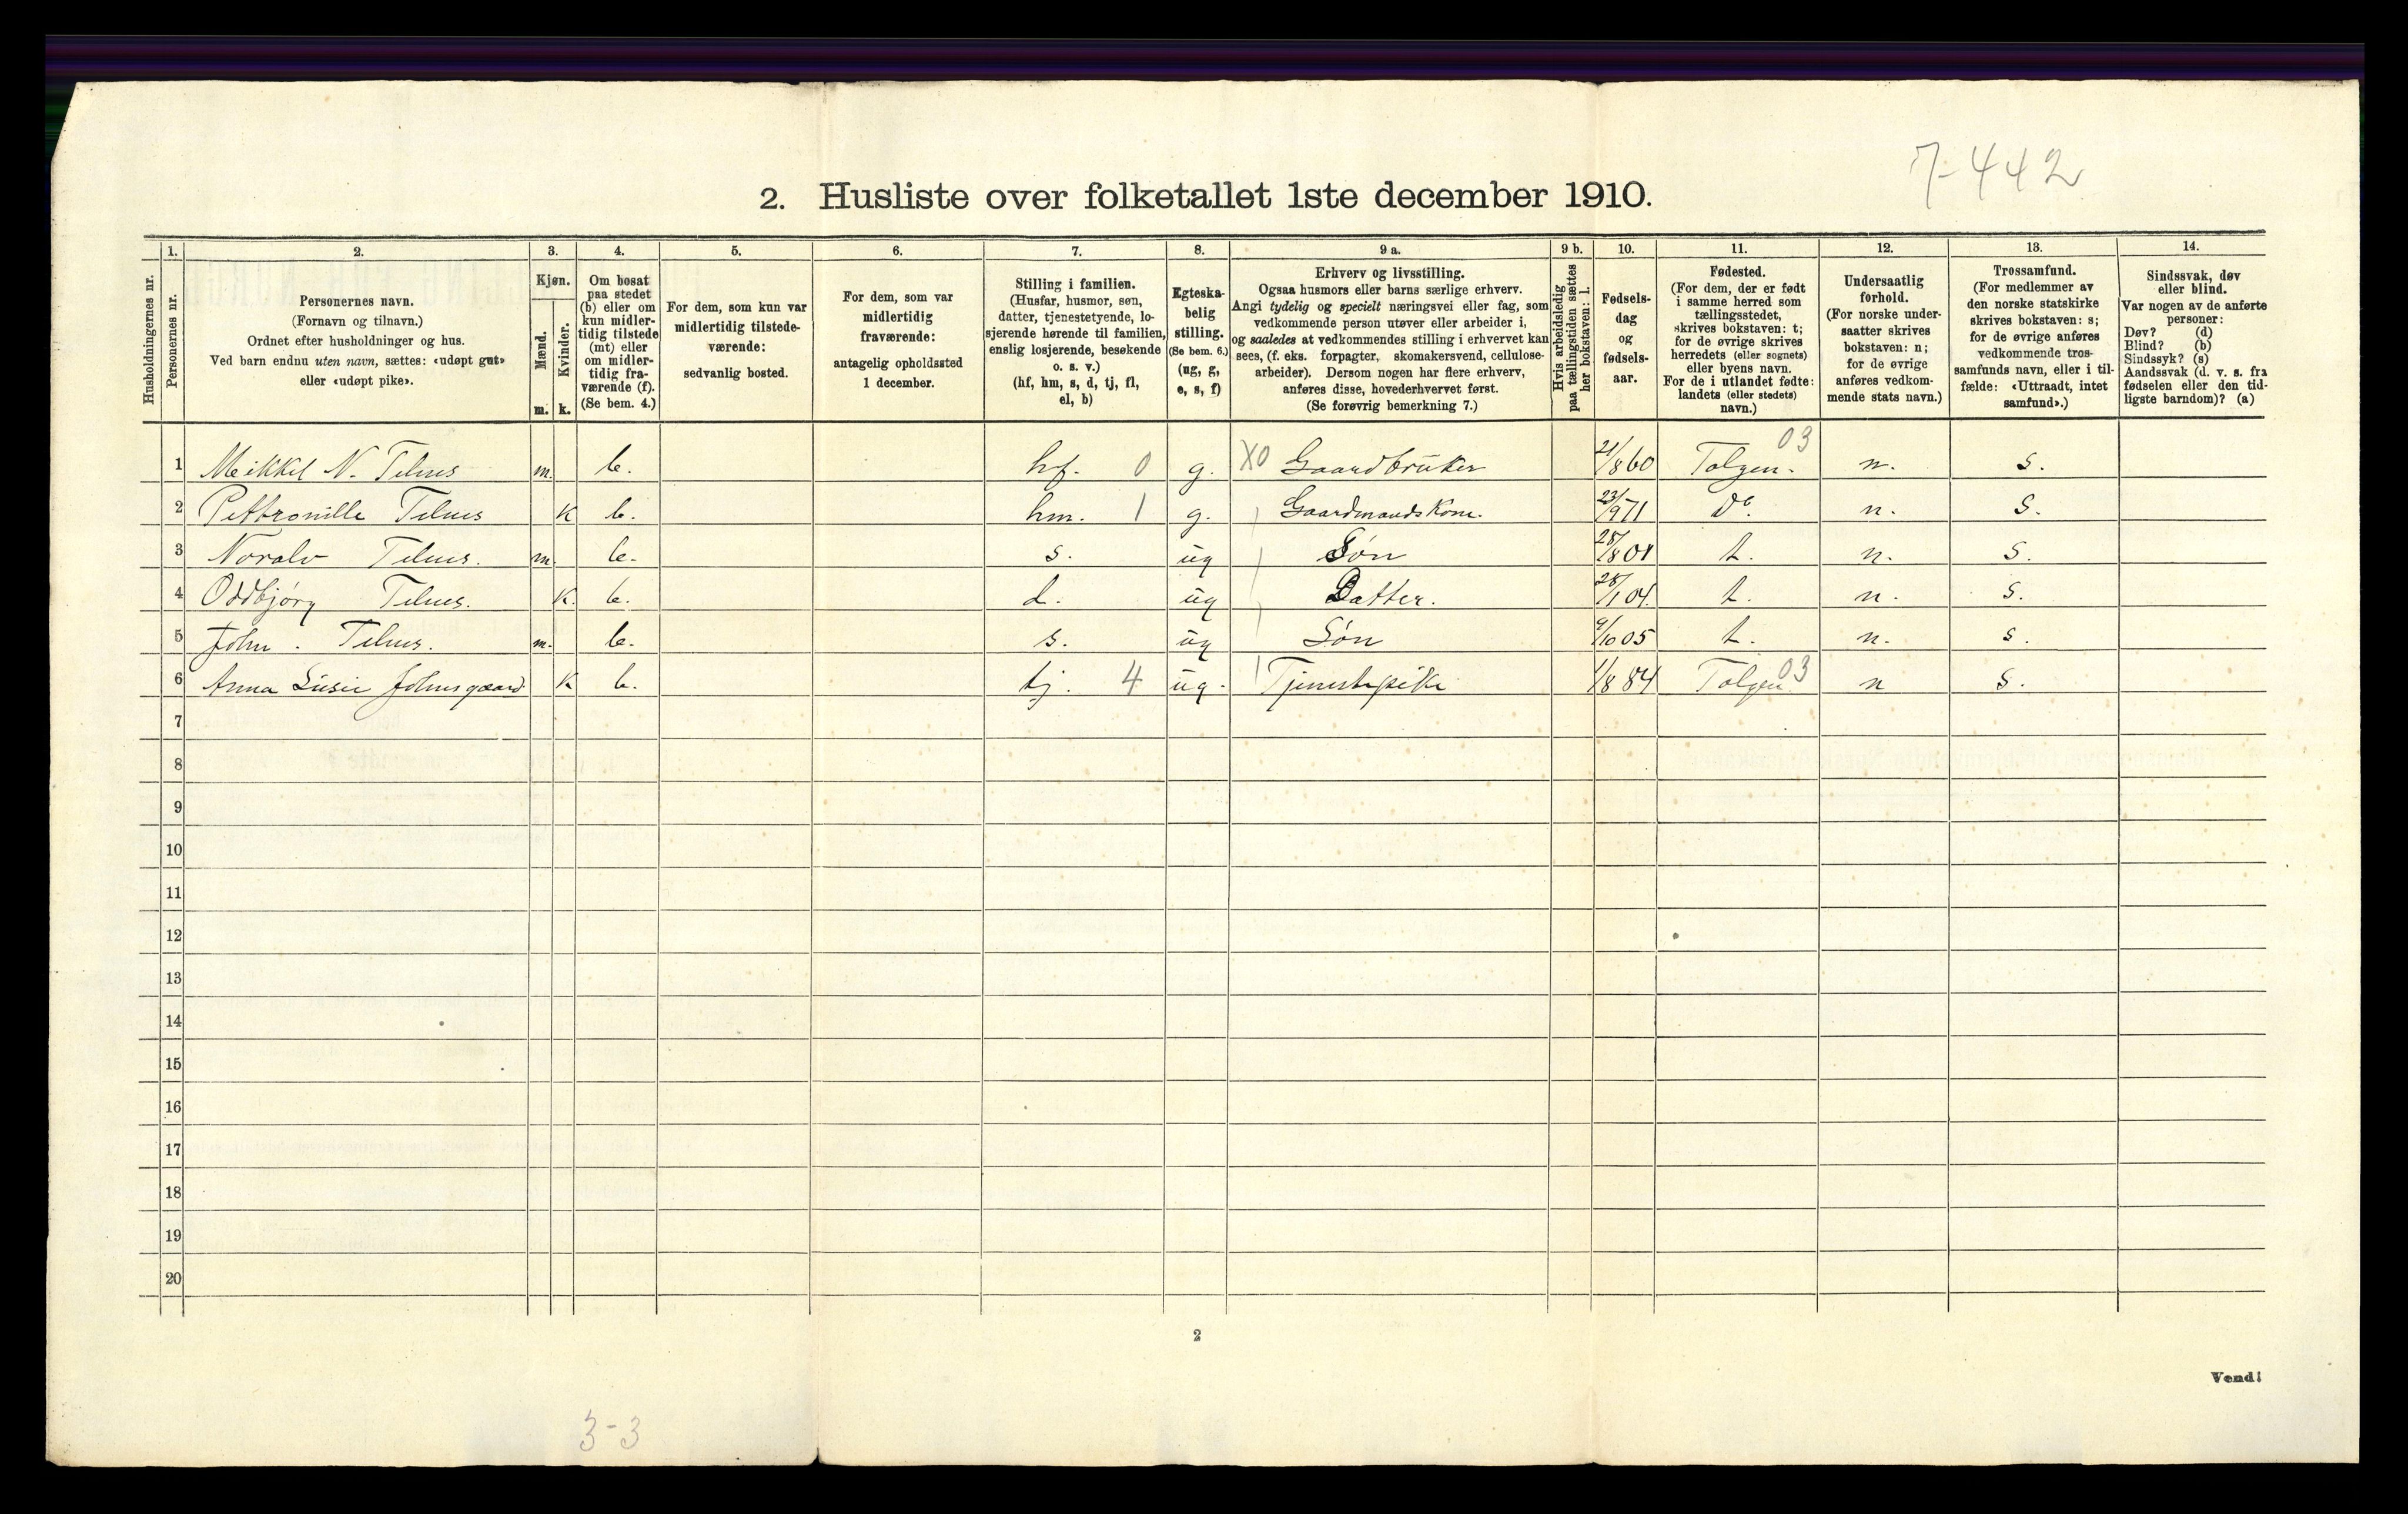 7-442
2. Husliste over folketallet 1ste december 1910.
Husholdningernes nr.
1. Personernes nr.
2. Personernes navn.
(Fornavn og tilnavn.)
Ordnet efter husholdninger og hus.
Ved barn endnu uten navn, sættes: «udøpt gut»
eller «udøpt pike».
3. Kjøn.
Mænd. m.
Kvinder. k.
4. Om bosat
paa stedet
(b) eller om
kun midler-
tidig tilstede
(mt) eller
om midler-
tidig fra-
værende (f).
(Se bem. 4.)
5. For dem, som kun var
midlertidig tilstede-
værende:
sedvanlig bosted.
6. For dem, som var
midlertidig
fraværende:
antagelig opholdssted
1 december.
7. Stilling i familien.
(Husfar, husmor, søn,
datter, tjenestetyende, lo-
sjerende hørende til familien,
enslig losjerende, besøkende
o. s. v.)
(hf, hm, s, d, tj, fl,
el, b)
8. Egteska-
belig
stilling.
(Se bem. 6.)
(ug, g,
e, s, f)
9 a. Erhverv og livsstilling.
Ogsaa husmors eller barns særlige erhverv.
Angi tydelig og specielt næringsvei eller fag, som
vedkommende person utøver eller arbeider i,
og saaledes at vedkommendes stilling i erhvervet kan
sees, (f. eks. forpagter, skomakersvend, cellulose-
arbeider). Dersom nogen har flere erhverv,
anføres disse, hovederhvervet først.
(Se forøvrig bemerkning 7.)
9 b. Hvis arbeidsledig
paa tællingstiden sættes
her bokstaven: l.
10. Fødsels-
dag
og
fødsels-
aar.
11. Fødested.
(For dem, der er født
i samme herred som
tællingsstedet,
skrives bokstaven: t;
for de øvrige skrives
herredets (eller sognets)
eller byens navn.
For de i utlandet fødte:
landets (eller stedets)
navn.)
12. Undersaatlig
forhold.
(For norske under-
saatter skrives
bokstaven: n;
for de øvrige
anføres vedkom-
mende stats navn.)
13. Trossamfund.
(For medlemmer av
den norske statskirke
skrives bokstaven: s;
for de øvrige anføres
vedkommende tros-
samfunds navn, eller i til-
fælde: «Uttraadt, intet
samfund».)
14. Sindssvak, døv
eller blind.
Var nogen av de anførte
personer:
Døv? (d)
Blind? (b)
Sindssyk? (s)
Aandssvak (d. v. s. fra
fødselen eller den tid-
ligste barndom)? (a)
1 Meikkel N. Telnes m. b. hf. 0 g. X0 Gaardbruker 21/8 60 Tolgen. 03 n. s.
2 Pettronille Telnes K b. hm. 1 g. Gaardmandskone. 23/9 71 Do. n. S.
3 Noralv Telnes. m. b. s. ug Søn 28/8 01 t. n. S.
4 Oddbjørg Telnes. K. b. d. ug Datter. 28/1 04. t. n. s.
5 John. Telnes. m. b. s. ug Søn 9/10 05 t. n. s.
6 Anna Lusie Johnsgaard K b. tj. 4 ug. Tjenestepike 1/8 84 Tolgen 03 n s.
7
8
9
10
11
12
13
14
15
16
17
18
19
20
2
Vend!
3-3